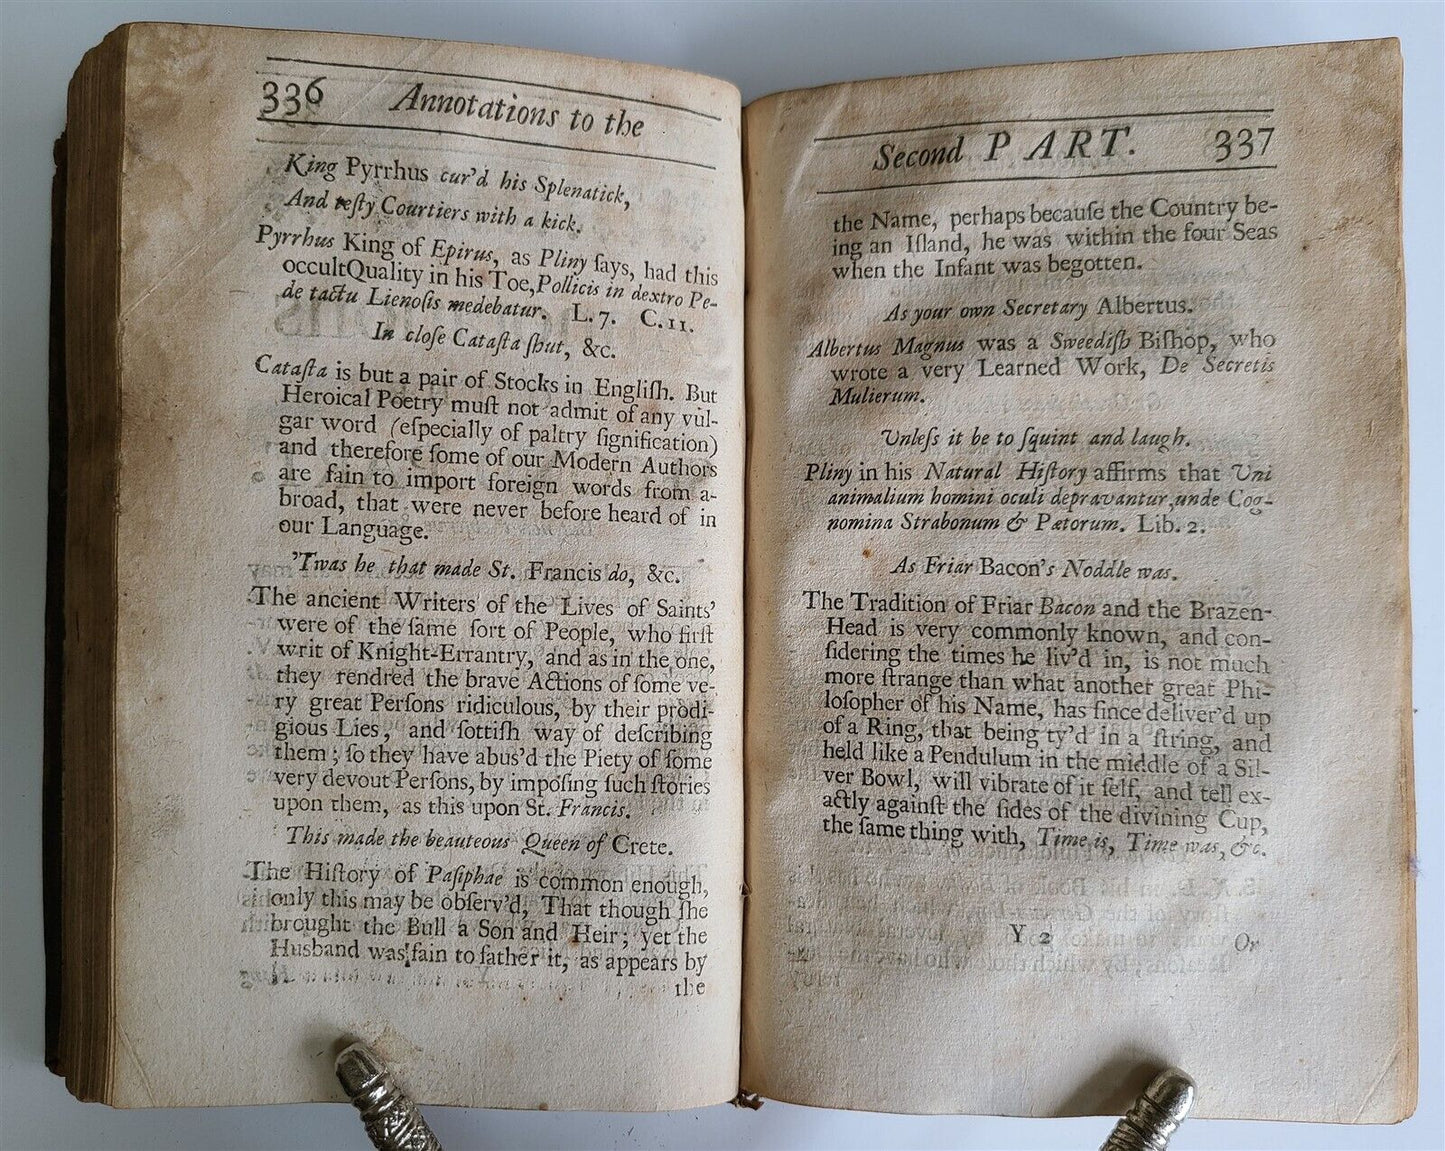 336 Annotations to the
King Pyrrhus cur'd his Splenatick,
And teſty Courtiers with a kick.
Pyrrhus King of Epirus, as Pliny ſays, had this
occult Quality in his Toe, Pollicis in dextro Pe-
de tactu Lienoſis medebatur. L. 7. C. 11.
In cloſe Cataſta ſhut, &c.
Cataſta is but a pair of Stocks in Engliſh. But
Heroical Poetry muſt not admit of any vul-
gar word (eſpecially of paltry ſignification)
and therefore ſome of our Modern Authors
are fain to import foreign words from a-
broad, that were never before heard of in
our Language.
'Twas he that made St. Francis do, &c.
The ancient Writers of the Lives of Saints'
were of the ſame ſort of People, who firſt
writ of Knight-Errantry, and as in the one,
they rendred the brave Actions of ſome ve-
ry great Perſons ridiculous, by their prodi-
gious Lies, and ſottiſh way of deſcribing
them; ſo they have abus'd the Piety of ſome
very devout Perſons, by impoſing ſuch ſtories
upon them, as this upon St. Francis.
This made the beauteous Queen of Crete.
The Hiſtory of Paſiphae is common enough,
only this may be obſerv'd, That though ſhe
brought the Bull a Son and Heir; yet the
Husband was fain to father it, as appears by
the
Second PART. 337
the Name, perhaps becauſe the Country be-
ing an Iſland, he was within the four Seas
when the Infant was begotten.
As your own Secretary Albertus.
Albertus Magnus was a Sweediſh Biſhop, who
wrote a very Learned Work, De Secretis
Mulierum.
Unleſs it be to ſquint and laugh.
Pliny in his Natural Hiſtory affirms that Uni
animalium homini oculi depravantur, unde Cog-
nomina Strabonum & Pætorum. Lib. 2.
As Friar Bacon's Noddle was.
The Tradition of Friar Bacon and the Brazen-
Head is very commonly known, and con-
ſidering the times he liv'd in, is not much
more ſtrange than what another great Phi-
loſopher of his Name, has ſince deliver'd up
of a Ring, that being ty'd in a ſtring, and
held like a Pendulum in the middle of a Sil-
ver Bowl, will vibrate of it ſelf, and tell ex-
actly againſt the ſides of the divining Cup,
the ſame thing with, Time is, Time was, &c.
Y 2 Or